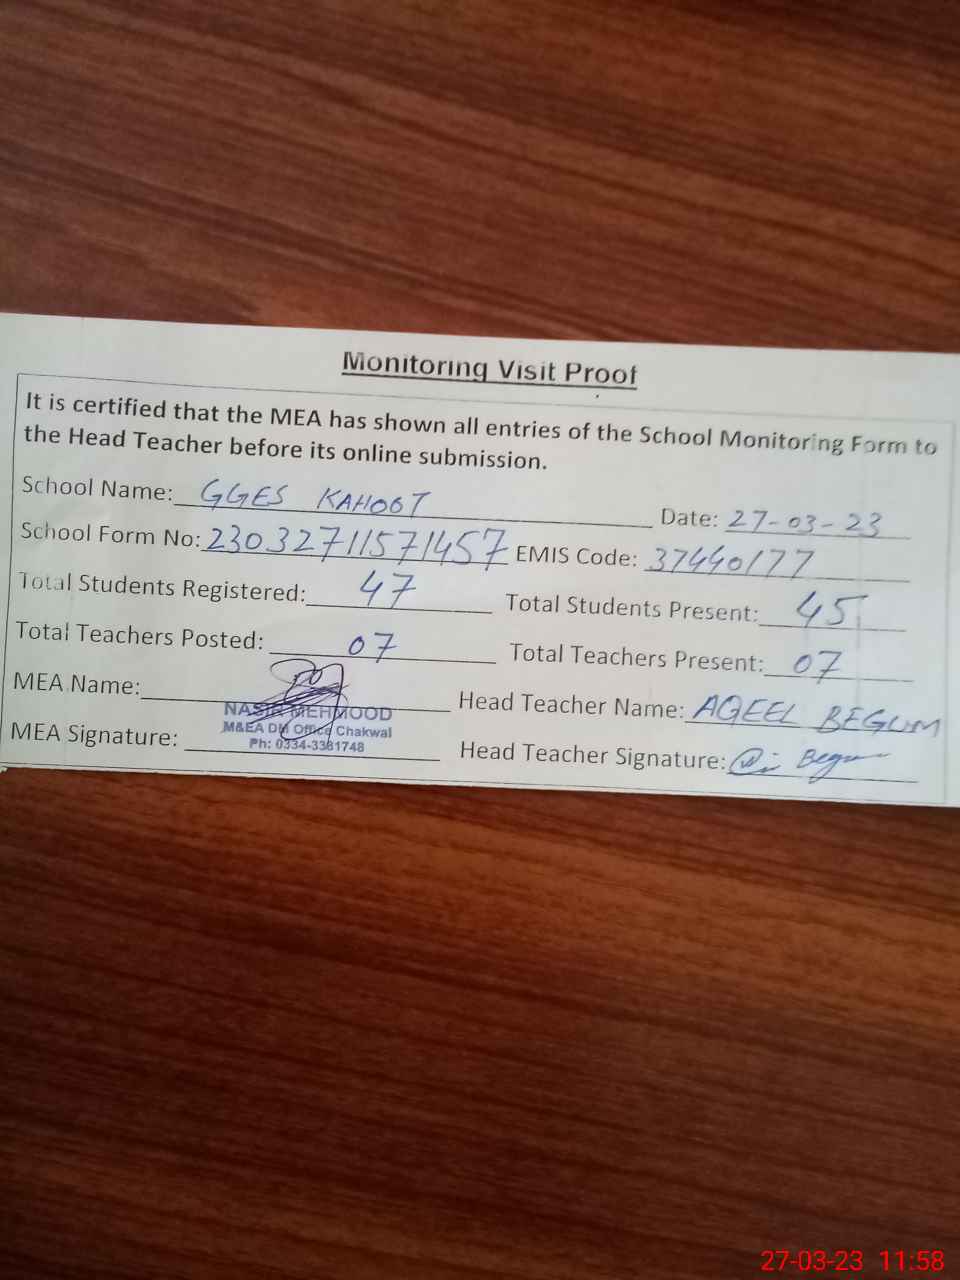 Monitoring Visit Proof
It is certified that the MEA has shown all entries of the School Monitoring Form to
the Head Teacher before its online submission.
School Name: GGES KAHOOT Date: 27-03-23
School Form No: 23032711571457 EMIS Code: 37440177
Total Students Registered: 47 Total Students Present: 45
Total Teachers Posted: 07 Total Teachers Present: 07
MEA Name: Head Teacher Name: AQEEL BEGUM
NASIR MEHMOOD
M&EA DM Office Chakwal
MEA Signature: Ph: 0334-3381748 Head Teacher Signature: Begum
27-03-23 11:58